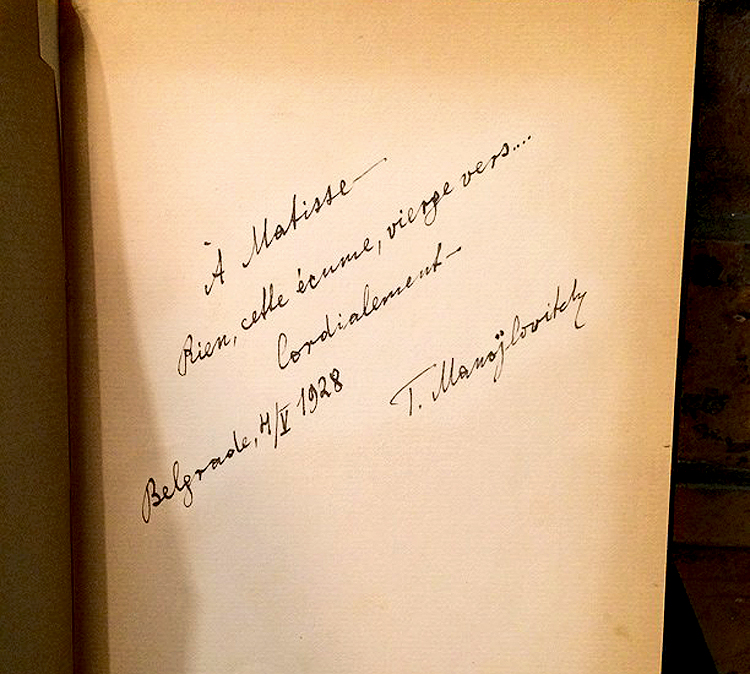 À Matisse—
Rien, cette écume, vierge vers....
Cordialement—
T. Manojlovitch
Belgrade, 4/V 1928